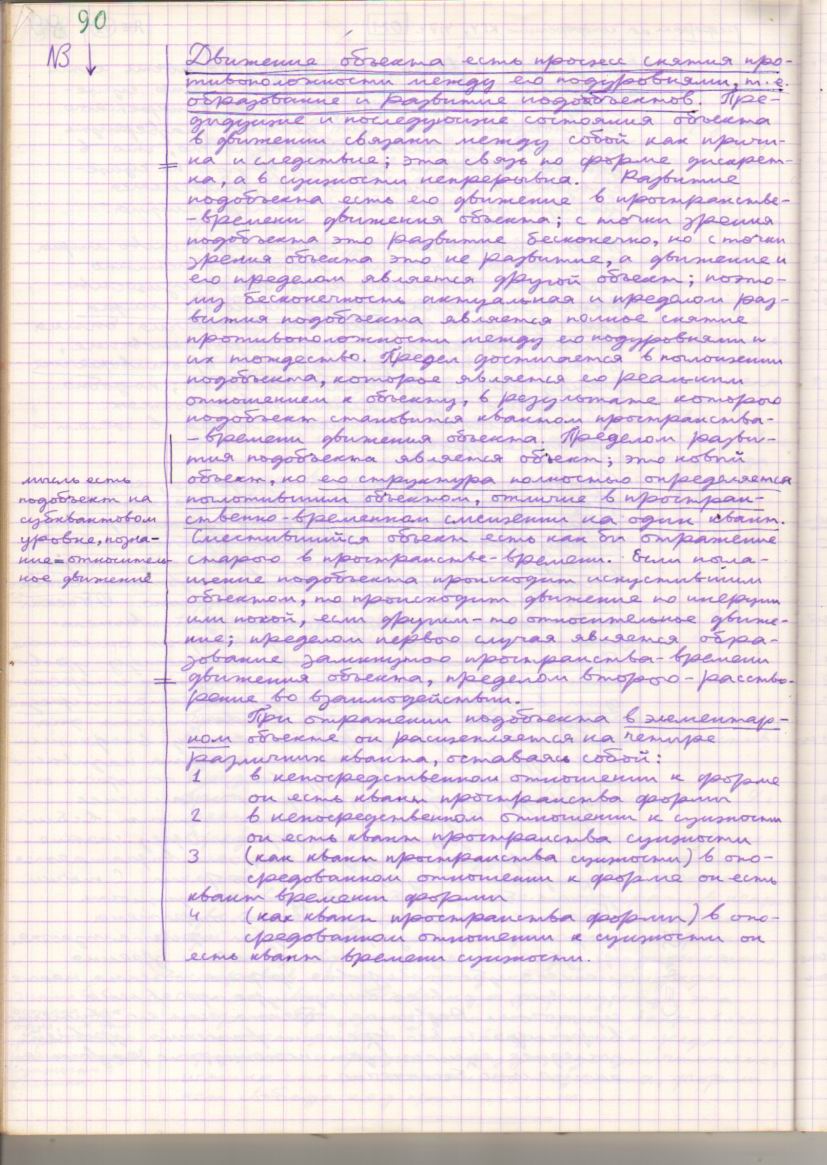 90
NB
Движение объекта есть процесс снятия про-
тивоположности между его подуровнями, т.е.
образование и развитие подобъектов. Пре-
дидущие и последующие состояния объекта
в движении связаны между собой как причи-
на и следствие; эта связь по форме дискрет-
на, а в сущности непрерывна. Развитие
подобъекта есть его движение в пространстве-
-времени движения объекта; с точки зрения
подобъекта это развитие бесконечно, но с точки
зрения объекта это не развитие, а движение и
его пределом является другой объект; поэто-
му бесконечность актуальная и пределом раз-
вития подобъекта является полное снятие
противоположности между его подуровнями и
их тождество. Предел достигается в поглощении
подобъекта, которое является его реальным
отношением к объекту, в результате которого
подобъект становится квантом пространства-
-времени движения объекта. Пределом разви-
тия подобъекта является объект; это новый
объект, но его структура полностью определяется
поглотившим объектом, отличие в простран-
ственно-временном смещении на один квант.
Сместившийся объект есть как бы отражение
старого в пространстве-времени. Если погло-
щение подобъекта происходит испустившим
объектом, то происходит движение по инерции
или покой, если другим - то относительное движе-
ние; пределом первого случая является обра-
зование замкнутого пространства-времени
движения объекта, пределом второго - раство-
рение во взаимодействии.
мысль есть
подобъект на
субквантовом
уровне, позна-
ние = относитель-
ное движение
При отражении подобъекта в элементар-
ном объекте он расщепляется на четыре
различных кванта, оставаясь собой:
1 в непосредственном отношении к форме
он есть квант пространства формы
2 в непосредственном отношении к сущности
он есть квант пространства сущности
3 (как квант пространства сущности) в опо-
средованном отношении к форме он есть
квант времени формы
4 (как квант пространства формы) в опо-
средованном отношении к сущности он
есть квант времени сущности.